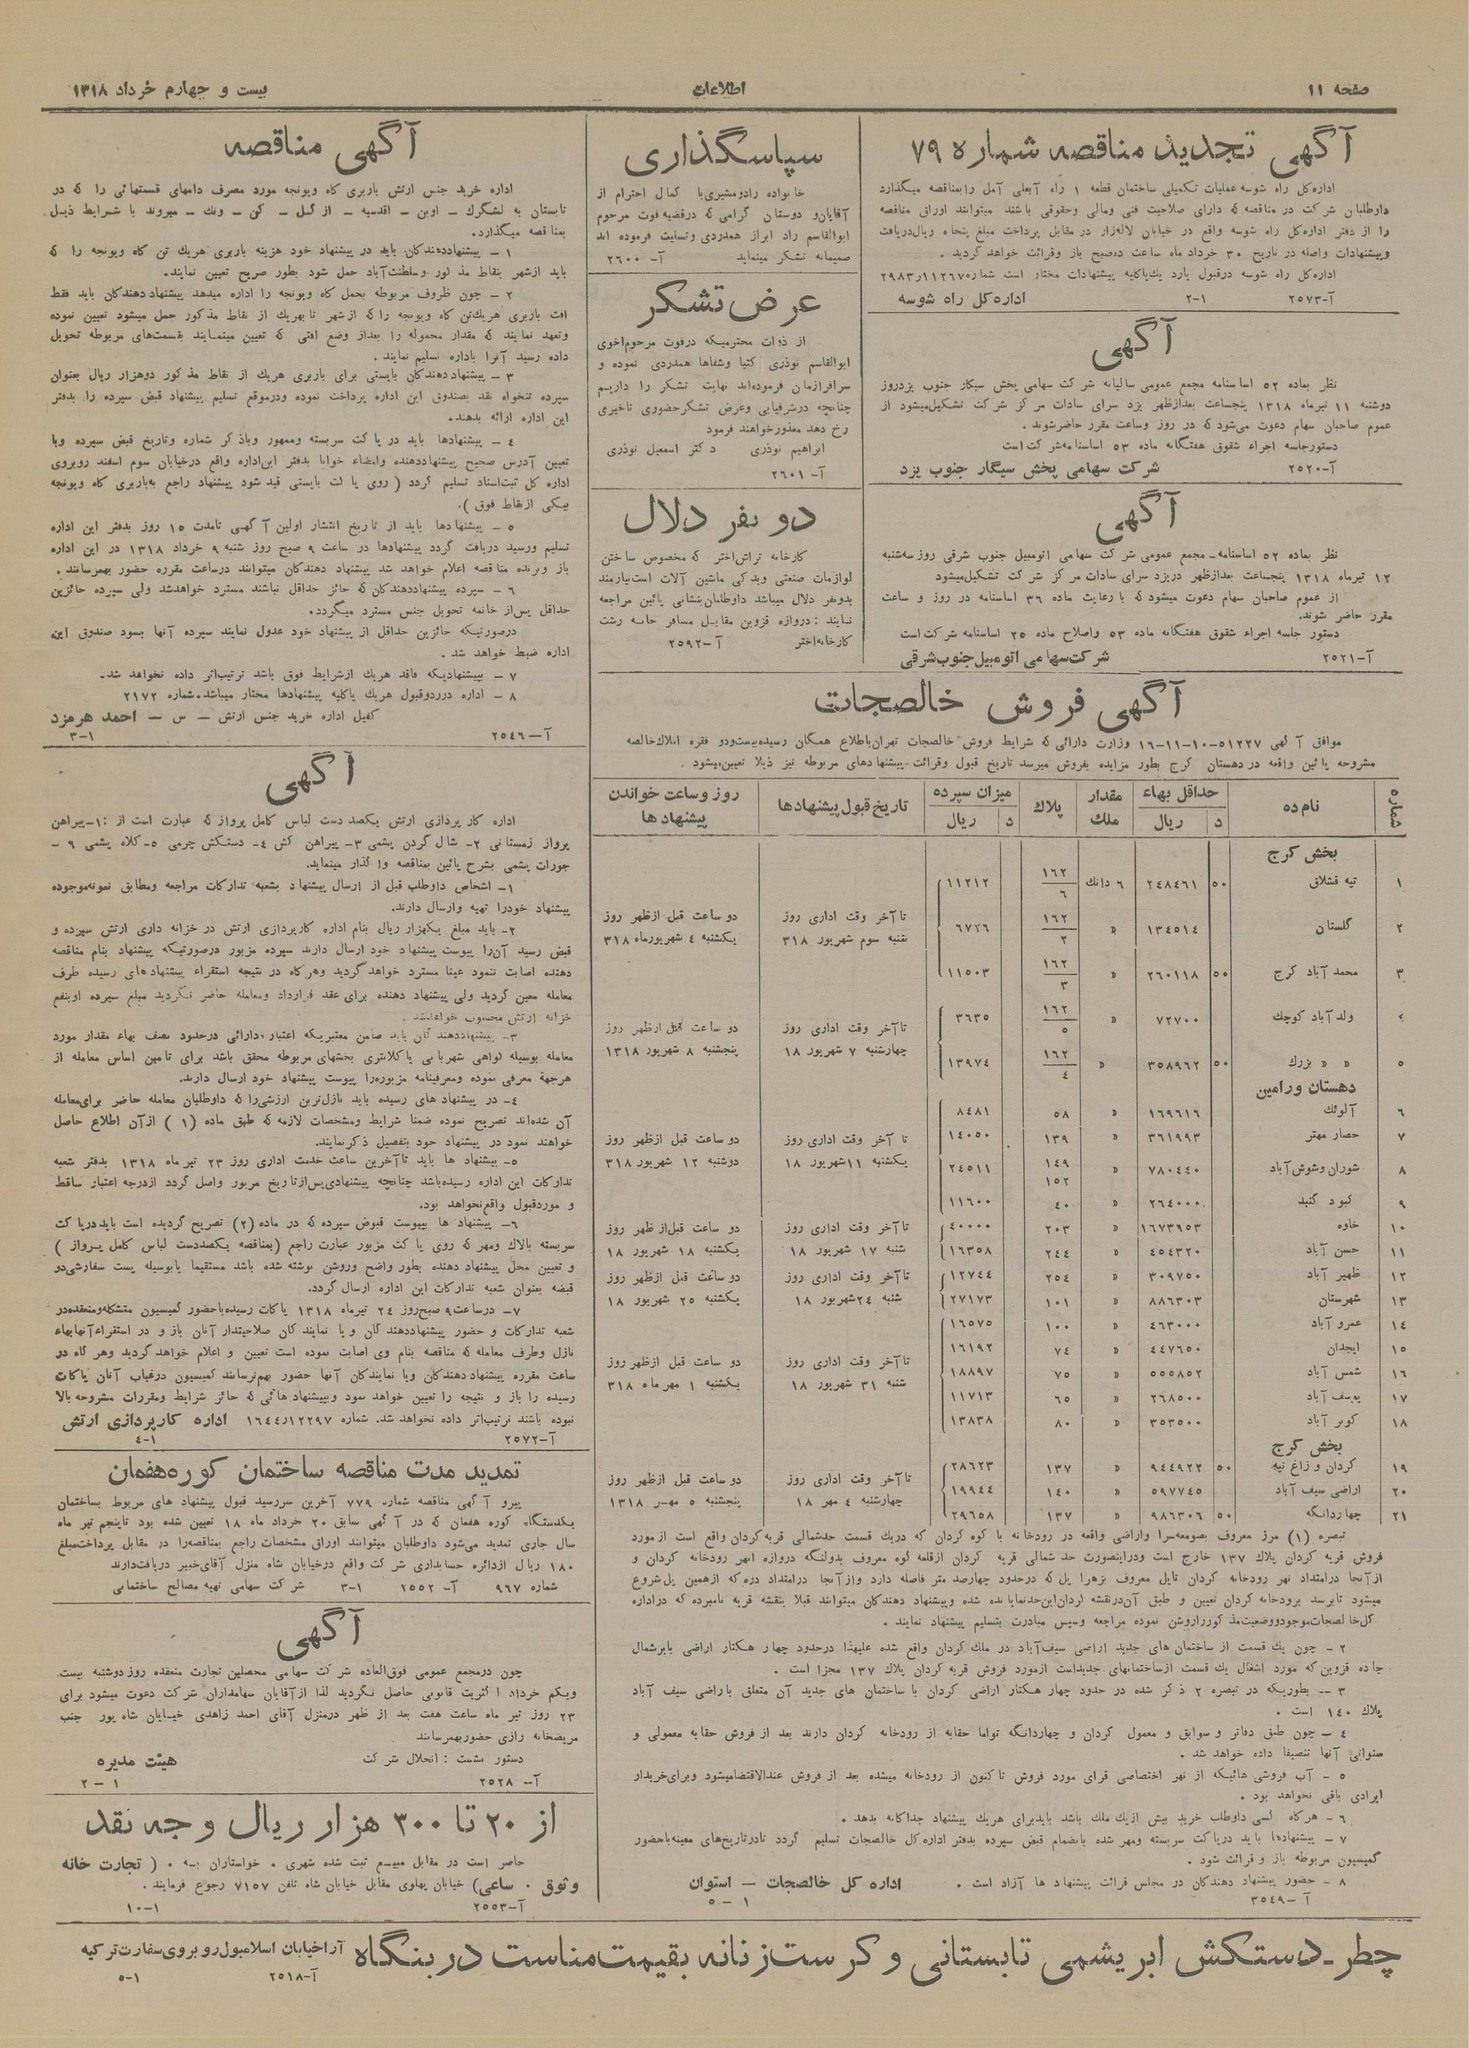 صفحه ۱۱
اطلاعات
بیست و چهارم خرداد ۱۳۱۸
آگهی تجدید مناقصه شماره ۷۹
اداره کل راه شوسه عملیات تکمیلی ساختمان قطعه ۱ راه آبعلی آمل را بمناقصه میگذارد
داوطلبان شرکت در مناقصه که دارای صلاحیت فنی و مالی و حقوقی باشند میتوانند اوراق مناقصه
را از دفتر اداره کل راه شوسه واقع در خیابان لاله‌زار در مقابل پرداخت مبلغ پنجاه ریال دریافت
و پیشنهادات واصله در تاریخ ۳۰ خرداد ماه ساعت ده صبح باز و قرائت خواهد گردید.
اداره کل راه شوسه در قبول یا رد یک یا کلیه پیشنهادات مختار است شماره ۱۱۲۶۷ر۲۹۸۳
آ-۲۵۷۳ ۱-۲ اداره کل راه شوسه
آگهی
نظر بماده ۵۲ اساسنامه مجمع عمومی سالیانه شرکت سهامی پخش سیگار جنوب یزد روز
دوشنبه ۱۱ تیرماه ۱۳۱۸ پنجساعت بعدازظهر یزد سرای سادات مرکز شرکت تشکیل میشود از
عموم صاحبان سهام دعوت می‌شود که در روز و ساعت مقرر حاضر شوند.
دستور جلسه اجراء شقوق هفتگانه ماده ۵۳ اساسنامه شرکت است
آ-۲۵۲۰ شرکت سهامی پخش سیگار جنوب یزد
آگهی
نظر بماده ۵۲ اساسنامه- مجمع عمومی شرکت سهامی اتومبیل جنوب شرقی روز سه‌شنبه
۱۲ تیرماه ۱۳۱۸ پنجساعت بعدازظهر در یزد سرای سادات مرکز شرکت تشکیل میشود
از عموم صاحبان سهام دعوت میشود که با رعایت ماده ۳۶ اساسنامه در روز و ساعت
مقرر حاضر شوند.
دستور جلسه اجراء شقوق هفتگانه ماده ۵۳ و اصلاح ماده ۲۵ اساسنامه شرکت است
آ-۲۵۲۱ شرکت سهامی اتومبیل جنوب شرقی
سپاسگذاری
خانواده رادومشیری با کمال احترام از
آقایان و دوستان گرامی که در قضیه فوت مرحوم
ابوالقاسم راد ابراز همدردی و تسلیت فرموده‌اند
صمیمانه تشکر مینماید آ-۲۶۰۰
عرض تشکر
از ذوات محترمیکه در فوت مرحوم اخوی
ابوالقاسم نوذری کتبا و شفاها همدردی نموده و
سرافرازمان فرموده‌اند نهایت تشکر را داریم
چنانچه در شرفیابی و عرض تشکر حضوری تاخیری
رخ دهد معذور خواهند فرمود
ابراهیم نوذری دکتر اسمعیل نوذری
آ-۲۶۰۱
دو نفر دلال
کارخانه تراش اختر که مخصوص ساختن
لوازمات صنعتی و یدکی ماشین آلات است نیازمند
بدو نفر دلال میباشد داوطلبان بنشانی پائین مراجعه
نمایند : دروازه قزوین مقابل مسافرخانه رشت
کارخانه اختر آ-۲۵۹۲
آگهی فروش خالصجات
موافق آگهی ۵۱۲۲۷-۱۰-۱۱-۱۶ وزارت دارائی که شرایط فروش خالصجات تهران باطلاع همگان رسیده بیست و دو فقره املاک خالصه
مشروحه پائین واقعه در دهستان کرج بطور مزایده بفروش میرسد تاریخ قبول و قرائت پیشنهادهای مربوطه نیز ذیلا تعیین میشود.
شماره | نام ده | حداقل بهاء د ریال | مقدار ملک | پلاک | میزان سپرده د ریال | تاریخ قبول پیشنهادها | روز و ساعت خواندن پیشنهادها
بخش کرج
۱ تپه قشلاق ۵۰ ۲۴۸۴۶۱ ۶ دانک ۱۶۲/۶ ۱۱۲۱۲
۲ گلستان ۱۳۴۵۱۴ » ۱۶۲/۲ ۶۷۲۶ تا آخر وقت اداری روز شنبه سوم شهریور ۳۱۸ دو ساعت قبل از ظهر روز یکشنبه ۴ شهریور ماه ۳۱۸
۳ محمد آباد کرج ۵۰ ۲۶۰۱۱۸ » ۱۶۲/۳ ۱۱۵۰۳
۴ ولد آباد کوچک ۷۲۷۰۰ » ۱۶۲/۵ ۳۶۳۵ تا آخر وقت اداری روز چهارشنبه ۷ شهریور ۱۸ دو ساعت قبل از ظهر روز پنجشنبه ۸ شهریور ۱۳۱۸
۵ » » بزرگ ۵۰ ۳۵۸۹۶۲ » ۱۶۲/۴ ۱۳۹۷۴
دهستان ورامین
۶ آلوئک ۱۶۹۶۱۶ » ۵۸ ۸۴۸۱
۷ حصار مهتر ۳۶۱۹۹۳ » ۱۳۹ ۱۴۰۵۰ تا آخر وقت اداری روز یکشنبه ۱۱ شهریور ۱۸ دو ساعت قبل از ظهر روز دوشنبه ۱۲ شهریور ۳۱۸
۸ شوران و شوش آباد ۷۸۰۴۴۰ » ۱۴۹ ۱۵۲ ۲۴۵۱۱
۹ کبود گنبد ۲۶۴۰۰۰ » ۴۰ ۱۱۶۰۰
۱۰ خاوه ۱۶۷۳۹۵۳ » ۲۰۳ ۴۰۰۰۰ تا آخر وقت اداری روز شنبه ۱۷ شهریور ۱۸ دو ساعت قبل از ظهر روز یکشنبه ۱۸ شهریور ۱۸
۱۱ حسن آباد ۴۵۴۳۲۰ » ۲۴۴ ۱۶۳۵۸
۱۲ ظهیر آباد ۳۰۹۷۵۰ » ۲۵۴ ۱۲۷۴۴ تا آخر وقت اداری روز شنبه ۲۴ شهریور ۱۸ دو ساعت قبل از ظهر روز یکشنبه ۲۵ شهریور ۱۸
۱۳ شهرستان ۸۸۶۳۰۳ » ۱۰۱ ۲۷۱۷۳
۱۴ عمرو آباد ۴۶۳۰۰۰ » ۱۰۰ ۱۶۵۷۵
۱۵ ایجدان ۴۴۷۶۵۰ » ۷۴ ۱۶۱۹۲
۱۶ شمس آباد ۵۵۵۸۵۲ » ۷۵ ۱۸۸۹۷ تا آخر وقت اداری روز شنبه ۳۱ شهریور ۱۸ دو ساعت قبل از ظهر روز یکشنبه ۱ مهر ماه ۳۱۸
۱۷ یوسف آباد ۲۶۸۵۰۰ » ۶۵ ۱۱۷۱۳
۱۸ کویر آباد ۳۵۳۵۰۰ » ۸۰ ۱۳۸۳۸
بخش کرج
۱۹ کردان و زاغ تپه ۵۰ ۹۴۴۹۲۲ » ۱۳۷ ۲۸۶۲۳
۲۰ اراضی سیف آباد ۵۹۷۷۴۵ » ۱۴۰ ۱۹۹۴۴ تا آخر وقت اداری روز چهارشنبه ۴ مهر ۱۸ دو ساعت قبل از ظهر روز پنجشنبه ۵ مهر ۱۳۱۸
۲۱ چهاردانگه ۵۰ ۹۸۶۳۰۶ » ۱۳۷ ۲۹۶۵۸
تبصره (۱) مرز معروف بصومعه‌سرا و اراضی واقعه در رودخانه با کوه کردان که در یک قسمت حد شمالی قریه کردان واقع است از مورد
فروش قریه کردان پلاک ۱۳۷ خارج است و در اینصورت حد شمالی قریه کردان از قلعه کوه معروف بدولنگه دروازه انهر رودخانه کردان و
از آنجا در امتداد نهر رودخانه کردان تا پل معروف بزهرا پل که در حدود چهارصد متر فاصله دارد و از آنجا در امتداد دره که از همین پل شروع
میشود تا برسد برودخانه کردان تعیین و طبق آن در نقشه کردان این حد نمایانده شده و پیشنهاد دهندگان میتوانند قبلا بنقشه قریه نامبرده که در اداره
کل خالصجات موجود و وضعیت مذکور را روشن نموده مراجعه و سپس مبادرت بتسلیم پیشنهاد نمایند.
۲- چون یک قسمت از ساختمان های جدید اراضی سیف‌آباد در ملک کردان واقع شده علیهذا در حدود چهار هکتار اراضی بایر شمال
جاده قزوین که مورد اشغال یک قسمت از ساختمانهای جدید است از مورد فروش قریه کردان پلاک ۱۳۷ مجزا است.
۳- بطوریکه در تبصره ۲ ذکر شده در حدود چهار هکتار اراضی کردان با ساختمان های جدید آن متعلق باراضی سیف آباد
پلاک ۱۴۰ است.
۴- چون طبق دفاتر و سوابق و معمول کردان و چهاردانگه تواما حقابه از رودخانه کردان دارند بعد از فروش حقابه معمولی و
سنواتی آنها تنصیفا داده خواهد شد.
۵- آب فروشی هائیکه از نهر اختصاصی قرای مورد فروش تاکنون از رودخانه میشده بعد از فروش عندالاقتضا میشود و برای خریدار
ایرادی باقی نخواهد بود.
۶- هرگاه کسی داوطلب خرید بیش از یک ملک باشد باید برای هر یک پیشنهاد جداگانه بدهد.
۷- پیشنهادها باید در پاکت سربسته و مهر شده بانضمام قبض سپرده بدفتر اداره کل خالصجات تسلیم گردد تا در تاریخ‌های معینه با حضور
کمیسیون مربوطه باز و قرائت شود.
۸- حضور پیشنهاد دهندگان در مجلس قرائت پیشنهادها آزاد است. اداره کل خالصجات - استوان
آ-۳۵۴۹ ۱-۵
آگهی مناقصه
اداره خرید جنس ارتش باربری کاه و یونجه مورد مصرف دامهای قسمتهائی را که در
تابستان به لشگرک - اوین - اقدسیه - ازگل - کن - ونک - میروند با شرایط ذیل
بمناقصه میگذارد.
۱- پیشنهاددهندگان باید در پیشنهاد خود هزینه باربری هریک تن کاه و یونجه را که
باید از شهر بنقاط مذکور و سلطنت‌آباد حمل شود بطور صریح تعیین نمایند.
۲- چون ظروف مربوطه بحمل کاه و یونجه را اداره میدهد پیشنهاد دهندگان باید فقط
افت باربری هریک تن کاه و یونجه را که از شهر تا بهریک از نقاط مذکور حمل میشود تعیین نموده
و تعهد نمایند که مقدار محموله را بعد از وضع افتی که تعیین مینمایند بقسمت‌های مربوطه تحویل
داده رسید آنرا باداره تسلیم نمایند.
۳- پیشنهاد دهندگان بایستی برای باربری هریک از نقاط مذکور دو هزار ریال بعنوان
سپرده تنخواه نقد بصندوق این اداره پرداخت نموده و در موقع تسلیم پیشنهاد قبض سپرده را بدفتر
این اداره ارائه بدهند.
۴- پیشنهادها باید در پاکت سربسته و ممهور و با ذکر شماره و تاریخ قبض سپرده و با
تعیین آدرس صحیح پیشنهاددهنده و امضاء خوانا بدفتر این اداره واقع در خیابان سوم اسفند روبروی
اداره کل ثبت اسناد تسلیم گردد (روی پاکت بایستی قید شود پیشنهاد راجع به باربری کاه و یونجه
بیکی از نقاط فوق).
۵- پیشنهادها باید از تاریخ انتشار اولین آگهی تا مدت ۱۵ روز بدفتر این اداره
تسلیم و رسید دریافت گردد پیشنهادها در ساعت ۹ صبح روز شنبه ۹ خرداد ۱۳۱۸ در این اداره
باز و برنده مناقصه اعلام خواهد شد پیشنهاد دهندگان میتوانند در ساعت مقرره حضور بهمرسانند.
۶- سپرده پیشنهاددهندگان که حائز حداقل نباشند مسترد خواهد شد ولی سپرده حائزین
حداقل پس از خاتمه تحویل جنس مسترد میگردد.
در صورتیکه حائزین حداقل از پیشنهاد خود عدول نمایند سپرده آنها بسود صندوق این
اداره ضبط خواهد شد.
۷- بپیشنهادیکه فاقد هریک از شرایط فوق باشد ترتیب اثر داده نخواهد شد.
۸- اداره در رد و قبول هریک یا کلیه پیشنهادها مختار میباشد. شماره ۲۱۷۲
کفیل اداره خرید جنس ارتش - س - احمد هرمزد
آ-۲۵۴۶ ۱-۳
آگهی
اداره کارپردازی ارتش یکصد دست لباس کامل پرواز که عبارت است از : ۱- پیراهن
پرواز زمستانی ۲- شال گردن پشمی ۳- پیراهن کش ۴- دستکش چرمی ۵- کلاه پشمی ۶-
جورات پشمی بشرح پائین بمناقصه واگذار مینماید.
۱- اشخاص داوطلب قبل از ارسال پیشنهاد بشعبه تدارکات مراجعه و مطابق نمونه موجوده
پیشنهاد خود را تهیه و ارسال دارند.
۲- باید مبلغ یکهزار ریال بنام اداره کارپردازی ارتش در خزانه داری ارتش سپرده و
قبض رسید آن را پیوست پیشنهاد خود ارسال دارند سپرده مزبور در صورتیکه پیشنهاد بنام مناقصه
دهنده اصابت ننمود عینا مسترد خواهد گردید و هرگاه در نتیجه استقراء پیشنهادهای رسیده طرف
معامله معین گردید ولی پیشنهاد دهنده برای عقد قرارداد و معامله حاضر نگردید مبلغ سپرده او بنفع
خزانه ارتش محسوب خواهد شد.
۳- پیشنهاددهندگان باید ضامن معتبریکه اعتبار دارائی در حدود نصف بهاء مقدار مورد
معامله بوسیله گواهی شهربانی یا کلانتری بخشهای مربوطه محقق باشد برای تامین اساس معامله از
هرجهة معرفی نموده و معرفینامه مزبور را پیوست پیشنهاد خود ارسال دارند.
۴- در پیشنهاد های رسیده باید نازل‌ترین ارزشی را که داوطلبان معامله حاضر برای معامله
آن شده‌اند تصریح نموده ضمنا شرایط و مشخصات لازمه که طبق ماده (۱) از آن اطلاع حاصل
خواهند نمود در پیشنهاد خود بتفصیل ذکر نمایند.
۵- پیشنهاد ها باید تا آخرین ساعت خدمت اداری روز ۲۳ تیر ماه ۱۳۱۸ بدفتر شعبه
تدارکات این اداره رسیده باشد چنانچه پیشنهادی پس از تاریخ مزبور واصل گردد از درجه اعتبار ساقط
و مورد قبول واقع نخواهد بود.
۶- پیشنهاد ها بپیوست قبوض سپرده که در ماده (۲) تصریح گردیده است باید در پاکت
سربسته بالاک و مهر که روی پاکت مزبور عبارت راجع (بمناقصه یکصد دست لباس کامل پرواز)
و تعیین محل پیشنهاد دهنده بطور واضح و روشن نوشته شده باشد مستقیما یا بوسیله پست سفارشی دو
قبضه بعنوان شعبه تدارکات این اداره ارسال گردد.
۷- در ساعت ۹ صبح روز ۲۴ تیرماه ۱۳۱۸ پاکات رسیده با حضور کمیسیون متشکله و منعقده در
شعبه تدارکات و حضور پیشنهاددهندگان و یا نمایندگان صلاحیتدار آنان باز و در استقراء آنها بهاء
نازل و طرف معامله که مناقصه بنام وی اصابت نموده است تعیین و اعلام خواهد گردید و هرگاه در
ساعت مقرره پیشنهاددهندگان و یا نمایندگان آنها حضور بهم نرسانند کمیسیون در غیاب آنان پاکات
رسیده را باز و نتیجه را تعیین خواهد نمود و بپیشنهاد هائی که حائز شرایط و مقررات مشروحه بالا
نبوده باشند ترتیب اثر داده نخواهد شد. شماره ۱۲۲۹۷ر۱۶۴۴ اداره کارپردازی ارتش
آ-۲۵۷۲ ۱-۴
تمدید مدت مناقصه ساختمان کوره هفمان
پیرو آگهی مناقصه شماره ۷۷۹ آخرین سررسید قبول پیشنهاد های مربوط بساختمان
یکدستگاه کوره هفمان که در آگهی سابق ۲۰ خرداد ماه ۱۸ تعیین شده بود تا پنجم تیر ماه
سال جاری تمدید می‌شود داوطلبان میتوانند اوراق مشخصات راجع بمناقصه را در مقابل پرداخت مبلغ
۱۸۰ ریال از دائره حسابداری شرکت واقع در خیابان شاه منزل آقای خبیر دریافت دارند
شماره ۹۶۷ آ-۲۵۵۲ ۱-۳ شرکت سهامی تهیه مصالح ساختمانی
آگهی
چون در مجمع عمومی فوق‌العاده شرکت سهامی محصلین تجارت منعقده روز دوشنبه بیست
و یکم خرداد اکثریت قانونی حاصل نگردید لذا از آقایان سهامداران شرکت دعوت میشود برای
۲۳ روز تیر ماه ساعت هفت بعد از ظهر در منزل آقای احمد زاهدی خیابان شاه پور جنب
مریضخانه رازی حضور بهمرسانند
دستور نشست : انحلال شرکت هیئت مدیره
آ-۲۵۲۸ ۱-۲
از ۲۰ تا ۳۰۰ هزار ریال وجه نقد
حاضر است در مقابل مبیع ثبت شده شهری. خواستاران به. (تجارت خانه
وثوق. ساعی) خیابان پهلوی مقابل خیابان شاه تلفن ۷۱۵۷ رجوع فرمایند.
آ-۲۵۵۳ ۱-۱۰
چطر-دستکش ابریشمی تابستانی و کرست زنانه بقیمت مناسب در بنگاه آرا خیابان اسلامبول روبروی سفارت ترکیه
آ-۲۵۱۸ ۱-۵